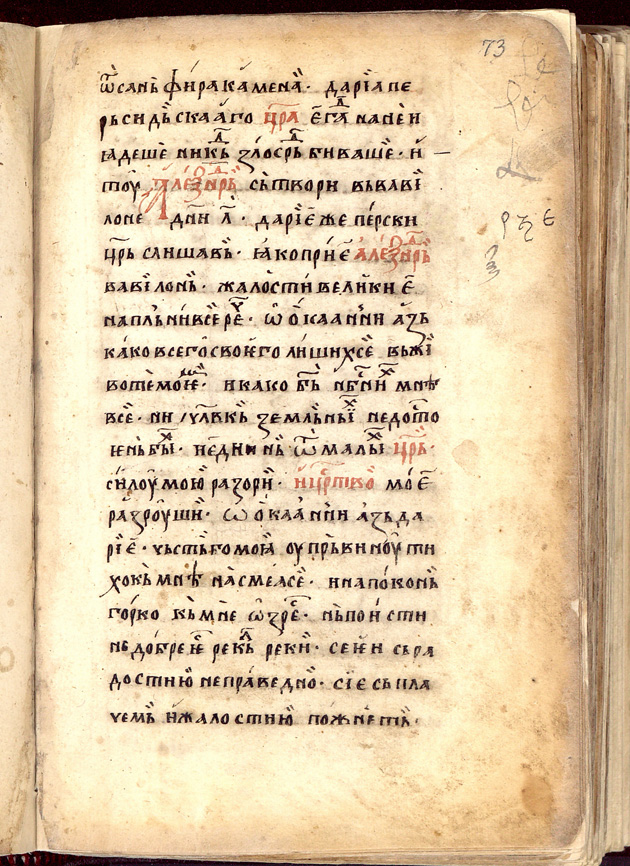 73
ѿсань фира камена · дарїа пе
рьсидьскааго цр҃а ега напен
ꙗдеше никь злосрь биваше · и
тоу алеѯндрь сьтвори вьвави
лоне дни л҃ · дарїе же перски
цр҃ь слишавь · ꙗко прие алеѯндрь
вавилонь · жалости велики е
напльни всере · ѡ окааннии азь
како всего своего лиших се вьжи
воте мое · и како б҃ь нбснии мнѣ
все · ни чл҃вкь земльнїи недосто
ень бы · неднинь ѿ малыи цр҃ь ·
силоу мою разори · и цр҃тво мое
разроуши · ѡ окааннии азь да
рїе · чьсть бо моꙗ оу прьви ноу ти
хокь мнѣ насмеꙗ се · и напоконь
горко кь мне ѡзре · нь поисти
не добре е рекль реки · сеѥи сь ра
достию неправедно · сїе сь пла
чемь и жалостию пожнеть ·